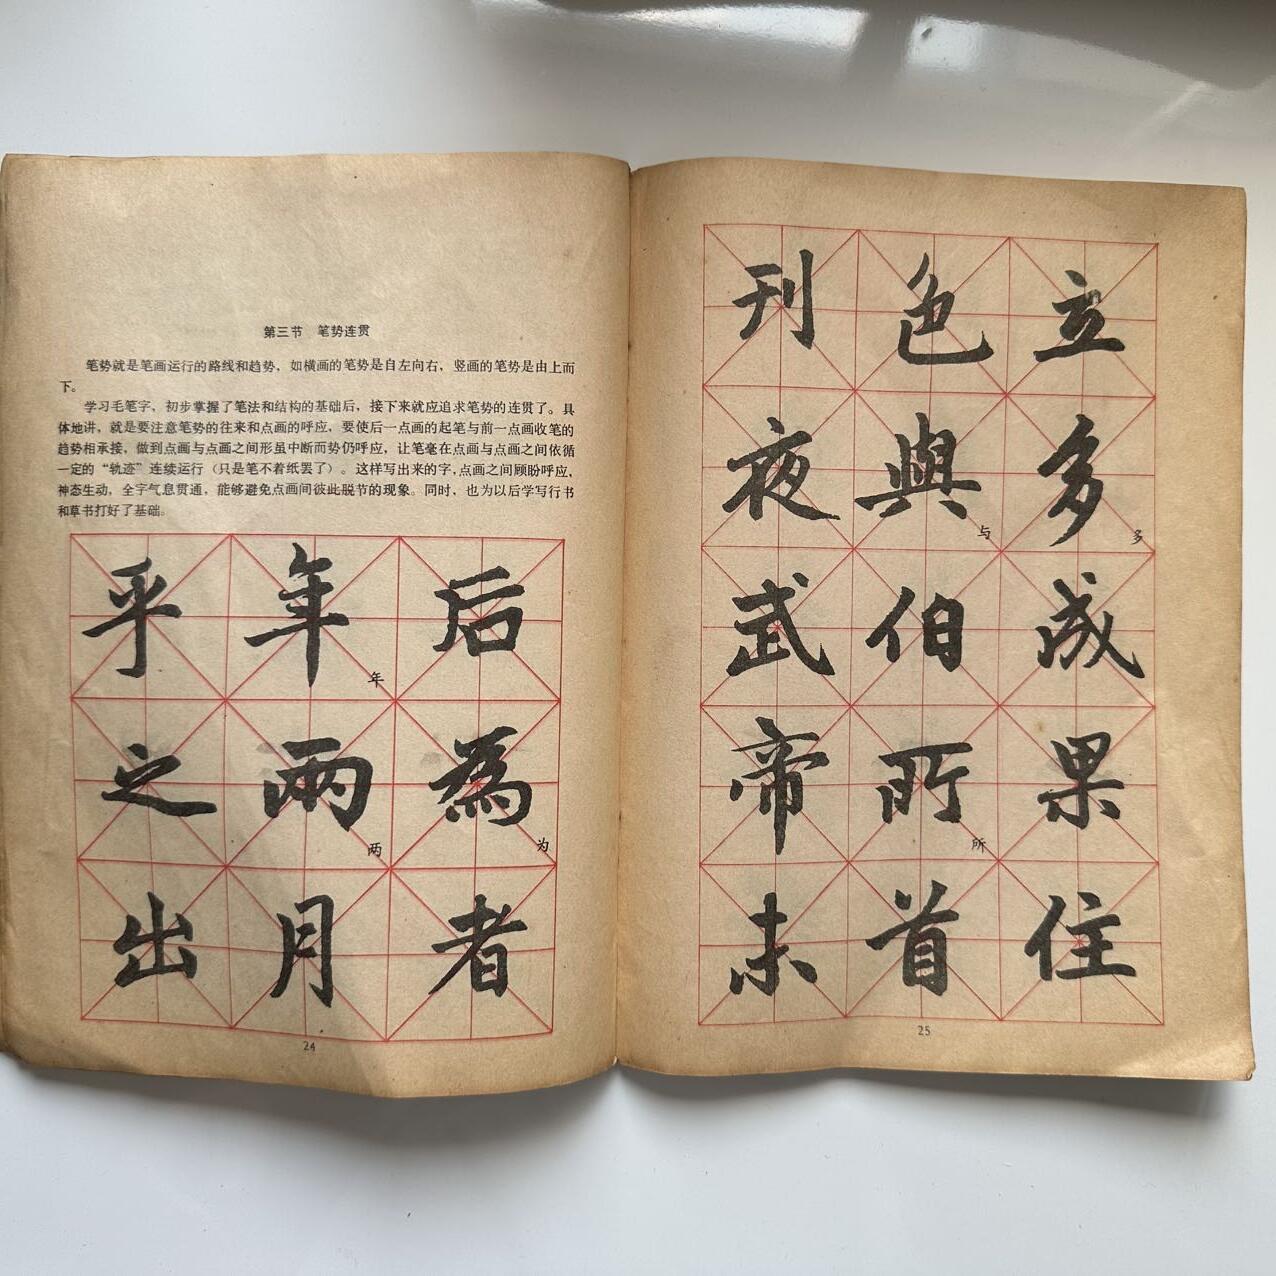 第三节 笔势连贯
笔势就是笔画运行的路线和趋势，如横画的笔势是自左向右，竖画的笔势是由上而
下。
学习毛笔字，初步掌握了笔法和结构的基础后，接下来就应追求笔势的连贯了。具
体地讲，就是要注意笔势的往来和点画的呼应，要使后一点画的起笔与前一点画收笔的
趋势相承接，做到点画与点画之间形虽中断而势仍呼应，让笔毫在点画与点画之间依循
一定的“轨迹”连续运行（只是笔不着纸罢了）。这样写出来的字，点画之间顾盼呼应，
神态生动，全字气息贯通，能够避免点画间彼此脱节的现象。同时，也为以后学写行书
和草书打好了基础。
乎 年 后
年
之 兩 為
两 为
出 月 者
24
刊 色 立
夜 與 多
与 多
武 伯 成
帝 所 果
所
未 首 住
25